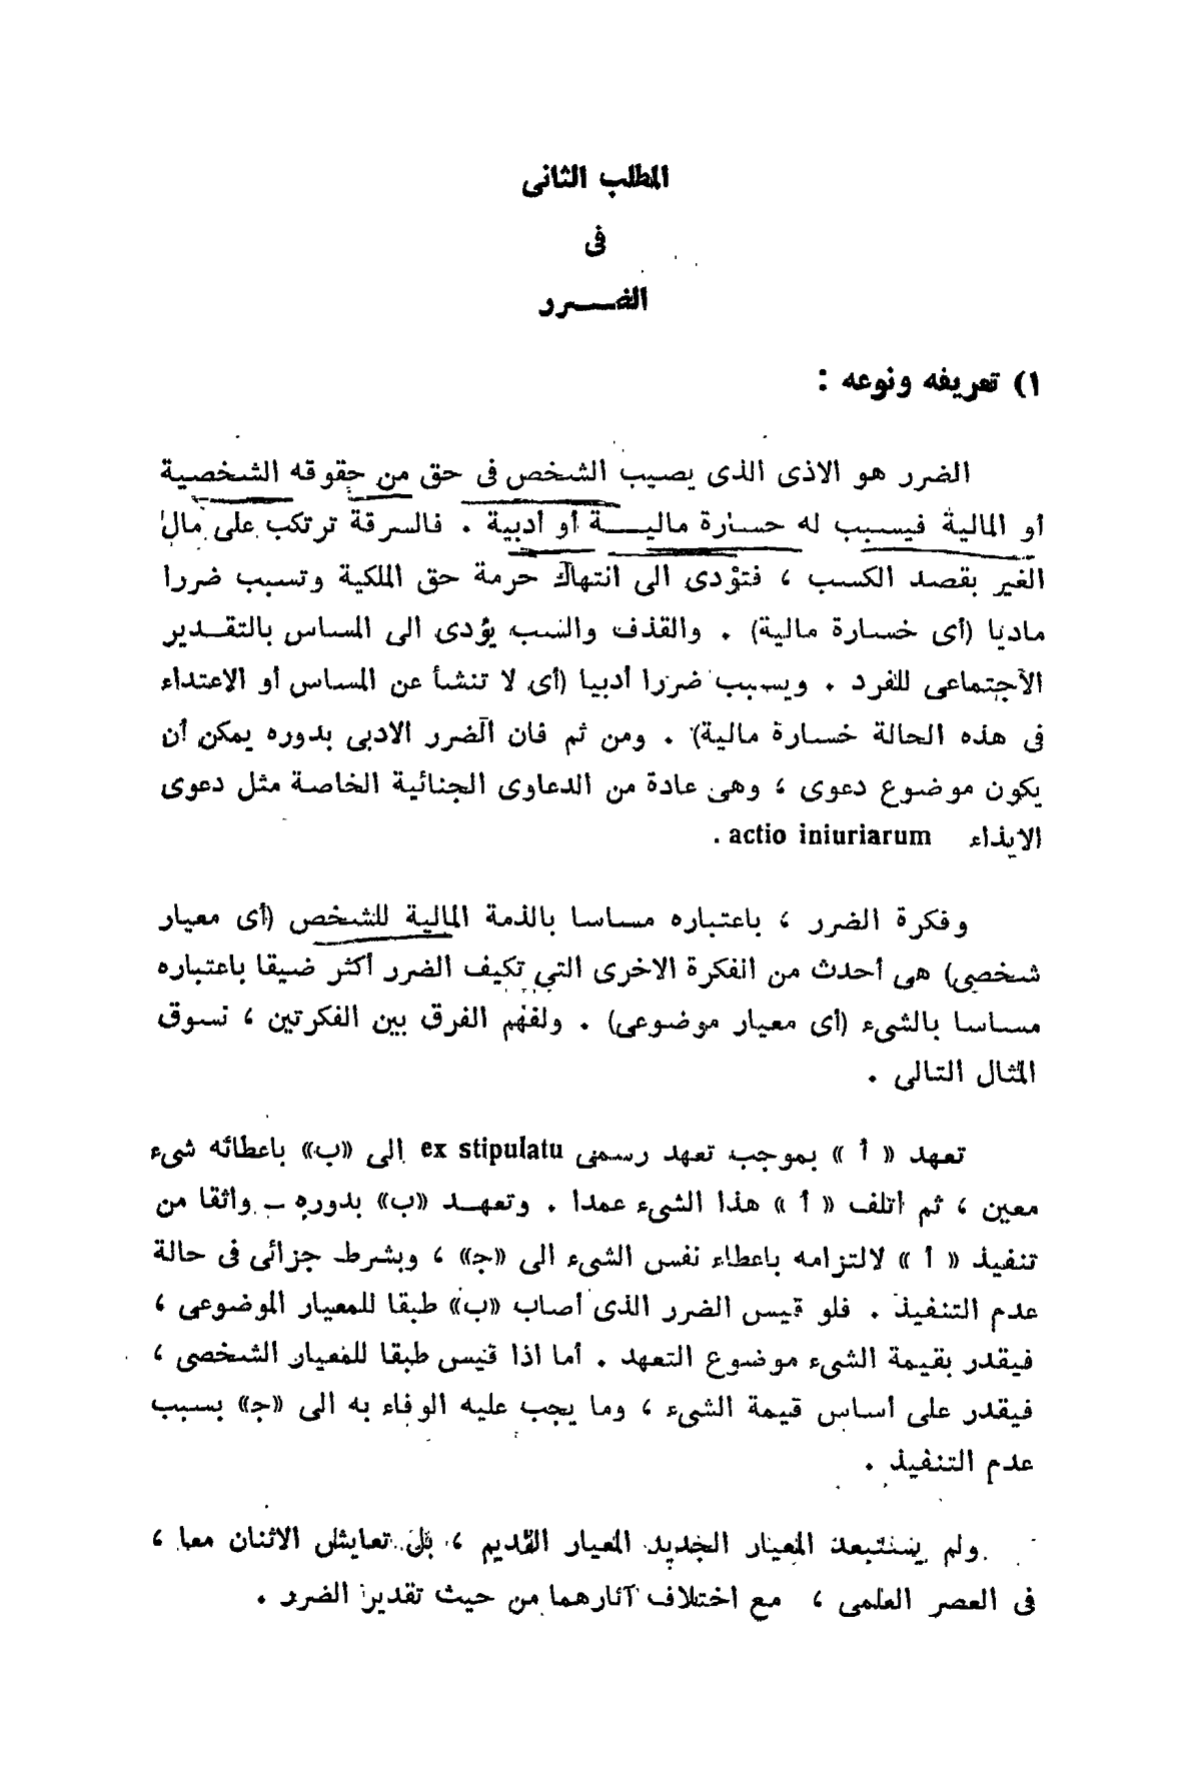 المطلب الثانى
فى
الضـــرر
١) تعريفه ونوعه :
الضرر هو الاذى الذى يصيب الشخص فى حق من حقوقه الشخصية
أو المالية فيسبب له خسارة ماليـــة أو أدبية . فالسرقة ترتكب على مال
الغير بقصد الكسب ، فتؤدى الى انتهاك حرمة حق الملكية وتسبب ضررا
ماديا (أى خسارة مالية) . والقذف والسب يؤدى الى المساس بالتقـدير
الاجتماعى للفرد . ويسبب ضررا أدبيا (أى لا تنشأ عن المساس أو الاعتداء
فى هذه الحالة خسارة مالية) . ومن ثم فان الضرر الادبى بدوره يمكن أن
يكون موضوع دعوى ، وهى عادة من الدعاوى الجنائية الخاصة مثل دعوى
الايذاء actio iniuriarum .
وفكرة الضرر ، باعتباره مساسا بالذمة المالية للشخص (أى معيار
شخصى) هى أحدث من الفكرة الاخرى التى تكيف الضرر أكثر ضيقا باعتباره
مساسا بالشىء (أى معيار موضوعى) . ولفهم الفرق بين الفكرتين ، نسوق
المثال التالى .
تعهد « أ » بموجب تعهد رسمى ex stipulatu الى «ب» باعطائه شىء
معين ، ثم أتلف « أ » هذا الشىء عمدا . وتعهـد «ب» بدوره – واثقا من
تنفيذ « أ » لالتزامه باعطاء نفس الشىء الى «ج» ، وبشرط جزائى فى حالة
عدم التنفيذ . فلو قيس الضرر الذى أصاب «ب» طبقا للمعيار الموضوعى ،
فيقدر بقيمة الشىء موضوع التعهد . أما اذا قيس طبقا للمعيار الشخصى ،
فيقدر على أساس قيمة الشىء ، وما يجب عليه الوفاء به الى «ج» بسبب
عدم التنفيذ .
ولم يستبعد المعيار الجديد المعيار القديم ، بل تعايش الاثنان معا ،
فى العصر العلمى ، مع اختلاف آثارهما من حيث تقدير الضرر .